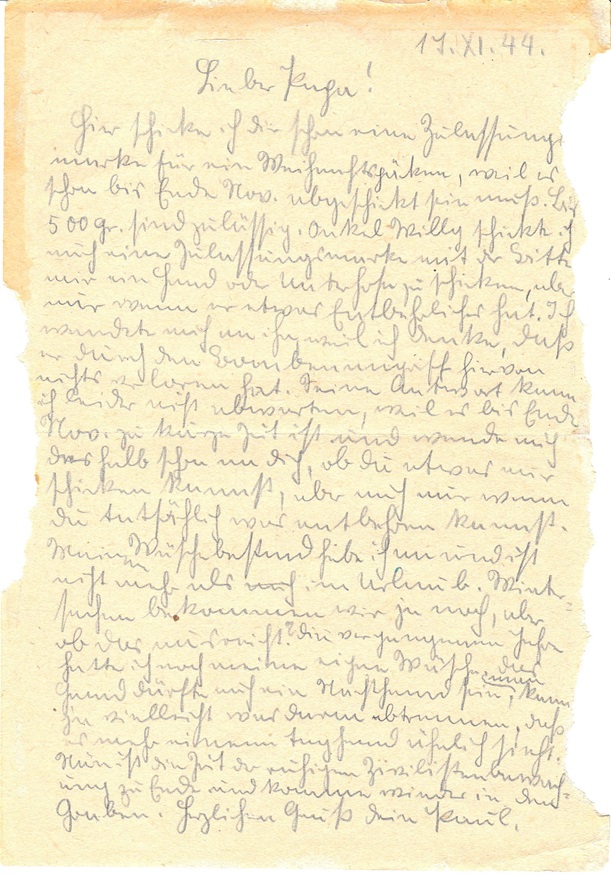 17.XI.44.
Lieber Papa!
Hier schicke ich dir schon eine Zulassungs
marke für ein Weihnachtspäken, weil es
schon bis Ende Nov. abgeschickt sein muß. Bis
500 gr. sind zulässig. Onkel Willy schickte ich
auch eine Zulassungsmarke mit der Bitte
mir ein Hemd oder Unterhose zu schicken, aber
nur wenn er etwas Entbehrliches hat. Ich
wandte mich an ihn weil ich denke, daß
er durch den Bombenangriff hiervon
nichts verloren hat. Seine Antwort kann
ich leider nicht abwarten, weil es bis Ende
Nov. zu kurze Zeit ist und wende mich
deshalb schon an dich, ob du etwas mir
schicken kannst, aber auch nur wenn
du tatsächlich was entbehren kannst.
Mein Wäschebestand habe ich an und ist
nicht mehr als im Urlaub. Winter-
sachen bekommen wir ja noch, aber
ob das ausreicht? Die vergangenen Jahre
hatte ich noch meine eigene Wäsche, das
Hemd dürfte auch ein Nachthemd sein, kann
ja vielleicht was daran abtrennen, daß
es mehr einem Taghemd ähnlich sieht.
Nun ist die Zeit der ruhigen Zivilistenbewach-
ung zu Ende und komme wieder in den
Graben. Herzlichen Gruß dein Paul.